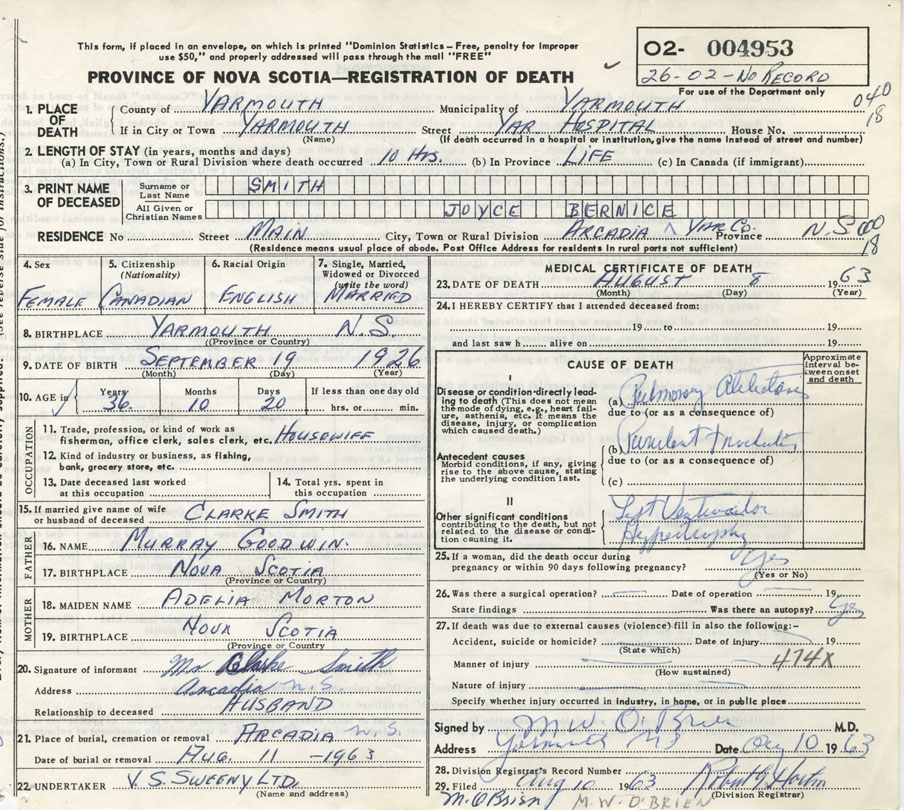 This form, if placed in an envelope, on which is printed "Dominion Statistics – Free, penalty for improper
use $50," and properly addressed will pass through the mail "FREE"
PROVINCE OF NOVA SCOTIA—REGISTRATION OF DEATH
02- 004953
26-02-No RECORD
For use of the Department only
040
18
1. PLACE OF DEATH County of YARMOUTH Municipality of YARMOUTH
If in City or Town YARMOUTH Street YAR HOSPITAL House No.
(Name) (If death occurred in a hospital or institution, give the name instead of street and number)
2. LENGTH OF STAY (in years, months and days)
(a) In City, Town or Rural Division where death occurred 10 Hrs. (b) In Province LIFE (c) In Canada (if immigrant)
3. PRINT NAME OF DECEASED Surname or Last Name SMITH
All Given or Christian Names JOYCE BERNICE
RESIDENCE No Street MAIN City, Town or Rural Division ARCADIA ^ YAR Co. Province N.S 000
18
(Residence means usual place of abode. Post Office Address for residents in rural parts not sufficient)
4. Sex 5. Citizenship (Nationality) 6. Racial Origin 7. Single, Married, Widowed or Divorced (write the word)
FEMALE CANADIAN ENGLISH MARRIED
8. BIRTHPLACE YARMOUTH N.S.
(Province or Country)
9. DATE OF BIRTH SEPTEMBER 19 1926
(Month) (Day) (Year)
10. AGE in Years Months Days If less than one day old
36 10 20 hrs. or min.
OCCUPATION
11. Trade, profession, or kind of work as
fisherman, office clerk, sales clerk, etc. HOUSEWIFE
12. Kind of industry or business, as fishing,
bank, grocery store, etc.
13. Date deceased last worked at this occupation 14. Total yrs. spent in this occupation
15. If married give name of wife
or husband of deceased CLARKE SMITH
FATHER
16. NAME MURRAY GOODWIN
17. BIRTHPLACE NOVA SCOTIA
(Province or Country)
MOTHER
18. MAIDEN NAME ADELIA MORTON
19. BIRTHPLACE NOVA SCOTIA
(Province or Country)
20. Signature of informant Mr Clarke Smith
Address Arcadia N.S.
Relationship to deceased HUSBAND
21. Place of burial, cremation or removal ARCADIA N.S.
Date of burial or removal AUG. 11 -1963
22. UNDERTAKER V.S. SWEENY LTD.
(Name and address)
MEDICAL CERTIFICATE OF DEATH
23. DATE OF DEATH AUGUST 8 1963
(Month) (Day) (Year)
24. I HEREBY CERTIFY that I attended deceased from:
19 to 19
and last saw h alive on 19
CAUSE OF DEATH
Approximate interval between onset and death
I
Disease or condition directly leading to death (This does not mean the mode of dying, e.g., heart failure, asthenia, etc. It means the disease, injury, or complication which caused death.)
(a) Pulmonary
due to (or as a consequence of)
Antecedent causes
Morbid conditions, if any, giving rise to the above cause, stating the underlying condition last.
(b)
due to (or as a consequence of)
(c)
II
Other significant conditions
contributing to the death, but not related to the disease or condition causing it.
Left Ventricular
Hypertrophy
25. If a woman, did the death occur during
pregnancy or within 90 days following pregnancy? Yes
(Yes or No)
26. Was there a surgical operation? Date of operation 19
State findings Was there an autopsy? Yes
27. If death was due to external causes (violence) fill in also the following:–
Accident, suicide or homicide? Date of injury 19
(State which)
Manner of injury 474X
(How sustained)
Nature of injury
Specify whether injury occurred in industry, in home, or in public place
Signed by M.W. O'Brien M.D.
Address Yarmouth NS Date Aug 10 1963
28. Division Registrar's Record Number
29. Filed Aug 10 1963
(Division Registrar)
M. O'Brien M-W-O'BRIEN